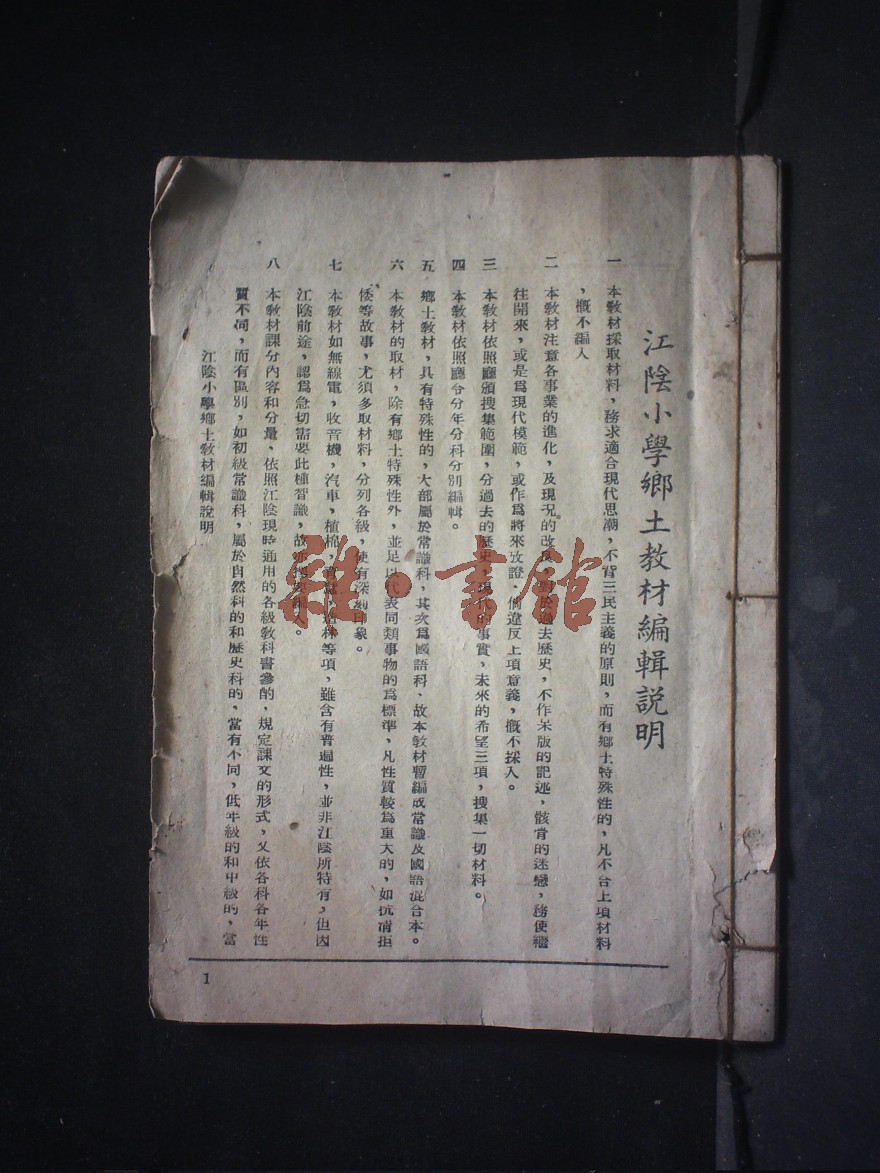 江陰小學鄉土教材編輯說明
一 本教材採取材料，務求適合現代思潮，不背三民主義的原則，而有鄉土特殊性的，凡不合上項材料
，概不編入
二 本教材注意各事業的進化，及現況的改良，對於過去歷史，不作呆版的記述，骸骨的迷戀，務使繼
往開來，或是爲現代模範，或作爲將來攷證，倘違反上項意義，概不採入。
三 本教材依照廳頒搜集範圍，分過去的歷史，現代的事實，未來的希望三項，搜集一切材料。
四 本教材依照廳令分年分科分別編輯。
五 鄉土教材，具有特殊性的，大部屬於常識科，其次爲國語科，故本教材暫編成常識及國語混合本。
六 本教材的取材，除有鄉土特殊性外，並足以代表同類事物的爲標準，凡性質較爲重大的，如抗清拒
倭等故事，尤須多取材料，分列各級，使有深刻印象。
七 本教材如無線電，收音機，汽車，植棉，育蠶，造林等項，雖含有普遍性，並非江陰所特有，但因
江陰前途，認爲急切需要此種智識，故亦編入。
八 本教材課分內容和分量，依照江陰現時通用的各級教科書參酌，規定課文的形式，又依各科各年性
質不同，而有區別，如初級常識科，屬於自然科的和歷史科的，當有不同，低年級的和中級的，當
江陰小學鄉土教材編輯說明
1
雜·書館